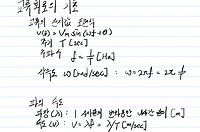 교류회로의 기초
교류의 순시값 표현식
v(t) = Vm sin(ωt + θ)
주기 T [sec]
주파수 f = 1/T [Hz]
각속도 ω [rad/sec] : ω = 2πf = 2π 1/T
파의 속도
파장(λ) : 1 주기에 [m]
속도(v) : v = λf = λ/T [m/sec]